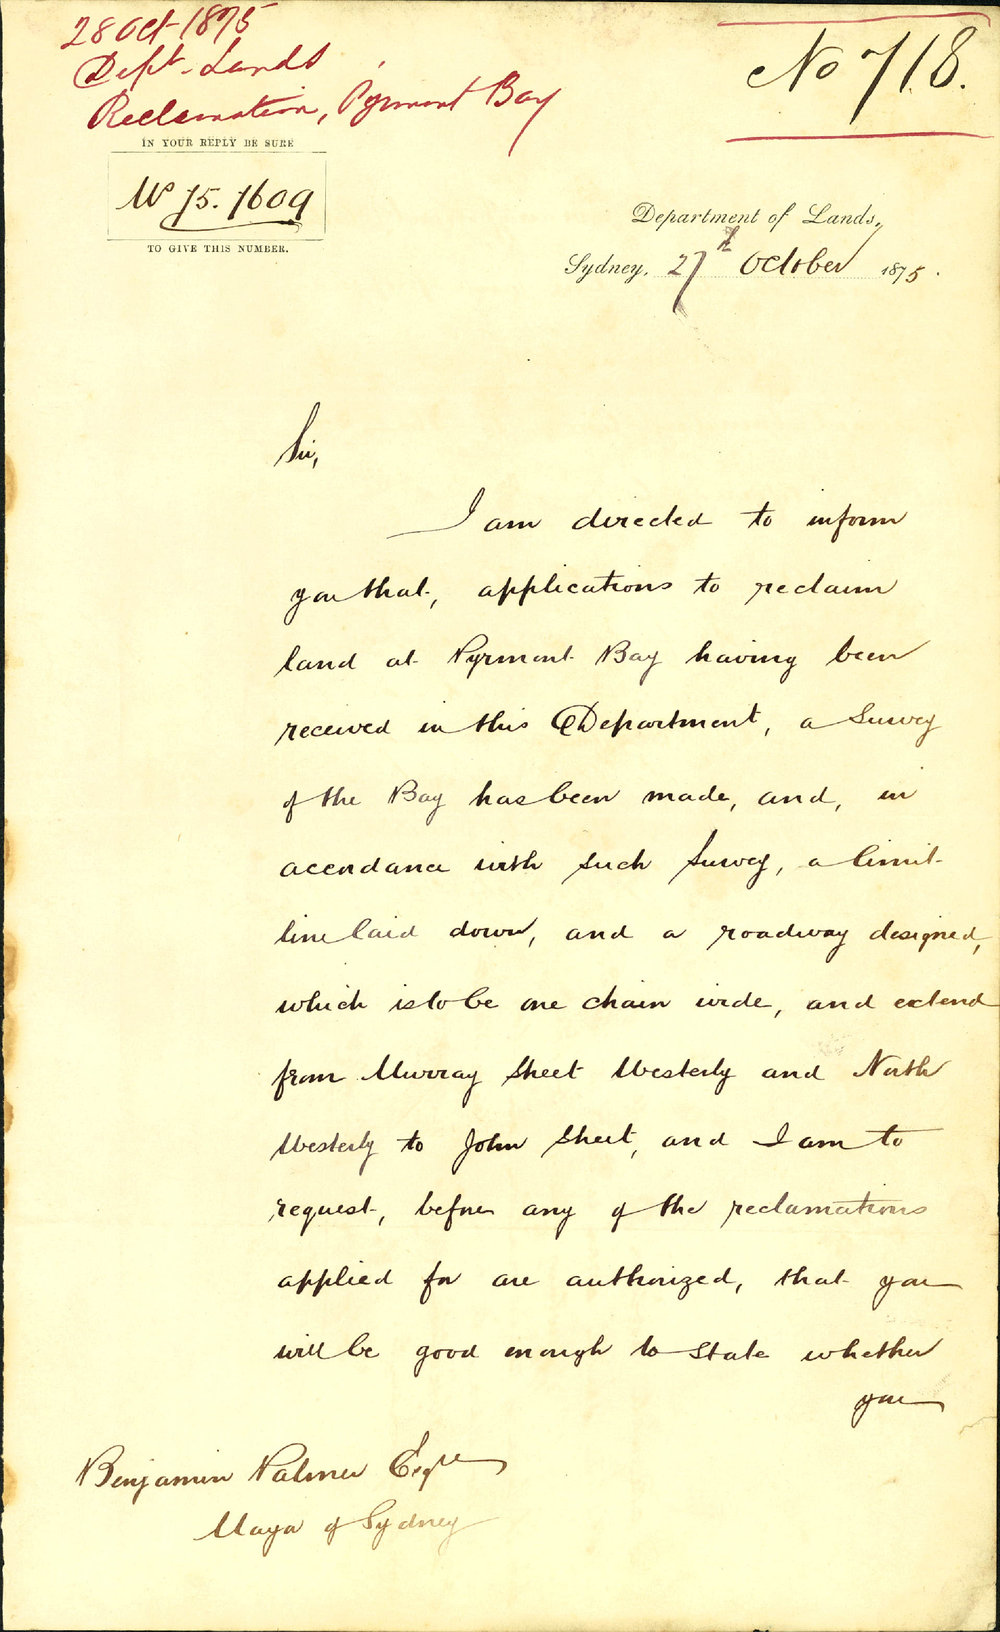 28 Oct 1875
Dept. Lands
Reclamation, Pyrmont Bay
No 718.
IN YOUR REPLY BE SURE
Ms 75. 7609
TO GIVE THIS NUMBER.
Department of Lands,
Sydney, 27th October 1875.
Sir,
I am directed to inform
you that, applications to reclaim
land at Pyrmont Bay having been
received in this Department, a Survey
of the Bay has been made, and, in
accordance with such Survey, a limit
line laid down, and a roadway designed,
which is to be one chain wide, and extend
from Murray Street Westerly and North
Westerly to John Street, and I am to
request, before any of the reclamations
applied for are authorized, that you
will be good enough to state whether
you
Benjamin Palmer Esqre
Mayor of Sydney